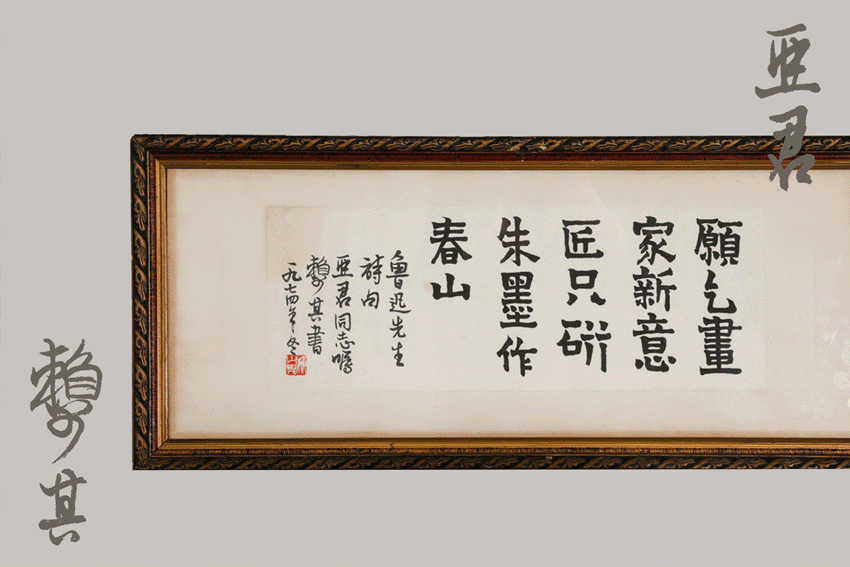 亞君
願乞畫
家新意
匠只研
朱墨作
春山
魯迅先生
詩句
亞君同志囑
賴少其書
一九七四年冬
賴少其